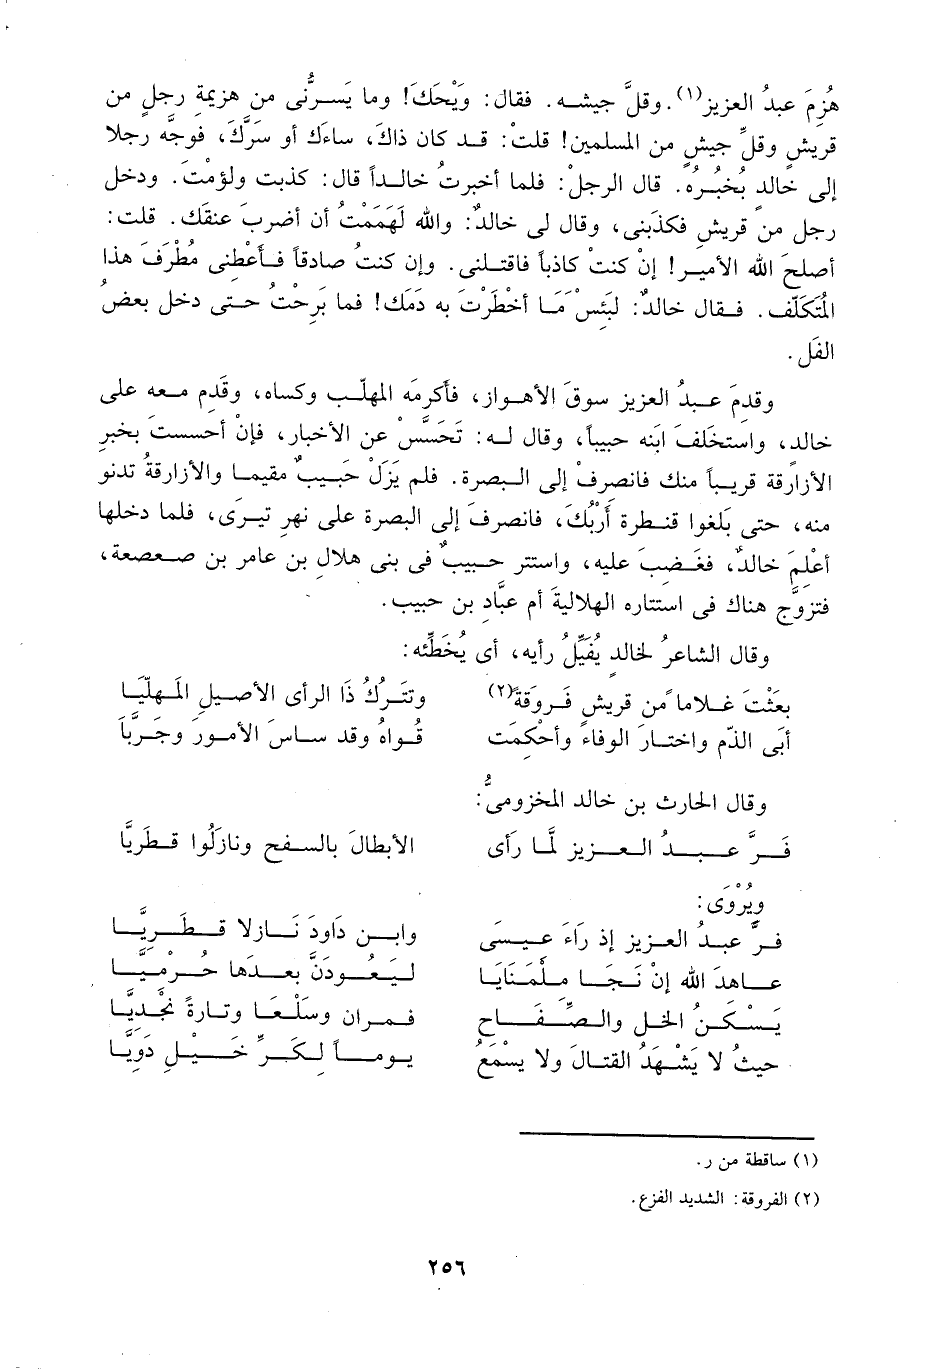 هُزِمَ عبدُ العزيز(١). وقلَّ جيشه. فقال: وَيْحَكَ! وما يَسرُّنى من هزيمة رجلٍ من
قريشٍ وقلِّ جيشٍ من المسلمين! قلتُ: قد كان ذاكَ، ساءَكَ أو سَرَّكَ، فوجَّه رجلا
إلى خالدٍ يُخْبِرُه. قال الرجلُ: فلما أخبرتُ خالداً قال: كذبتَ ولؤمْتَ. ودخل
رجلٌ من قريشٍ فكذَّبنى، وقال لى خالدٌ: والله لَهَمَمْتُ أن أضربَ عنقَك. قلت:
أصلحَ الله الأميرَ! إنْ كنتُ كاذباً فاقتلنى. وإن كنتُ صادقاً فأَعْطِنى مُطْرَفَ هذا
المُتَكَلِّف. فقال خالدٌ: لَبِئْسَ مَا أَخْطَرْتَ به دَمَك! فما بَرِحْتُ حتى دخل بعضُ
الفَلِّ.
وقدمَ عبدُ العزيز سوقَ الأهواز، فأكرمَه المهلّب وكساه، وقَدِم معه على
خالد، واستخلفَ ابنَه حبيباً، وقال له: تَحَسَّسْ عن الأخبار، فإنْ أحسستَ بخبر
الأزارقة قريباً منك فانصرفْ إلى البصرة. فلم يَزَلْ حَبيبٌ مقيماً والأزارقةُ تدنو
منه، حتى بَلَغوا قنطرة أَرْبُك، فانصرفَ إلى البصرة على نهر تِيرَى، فلما دخلها
أعْلَمَ خالدٌ، فغَضبَ عليه، واستتر حبيبٌ فى بنى هلال بن عامر بن صعصعة،
فتزوَّج هناك فى استتاره الهلاليةَ أم عبَّاد بن حبيب.
وقال الشاعرُ لخالد يُفَيِّلُ رأيه، أى يُخَطِّئه:
بعثْتَ غلاماً من قريشٍ فَروقةً(٢) وتتْرُكُ ذا الرأى الأصيلِ المهلَّبَا
أبَى الذّم واختارَ الوفاءَ وأَحْكَمَت قُواه وقد ساسَ الأمورَ وجَرَّبَا
وقال الحارث بن خالد المخزومىُّ:
فَرَّ عبدُ العزيز لَمَّا رأى الأبطالَ بالسفحِ ونازَلُوا قطَرِيًّا
ويُرْوَى:
فرَّ عبدُ العزيز إذ رَاءَ عيسَى وابن دَاودَ نَازلا قَطَرِيًّا
عاهدَ الله إنْ نَجَا مِلْمَنَايَا لَيَعُودَنْ بعدَها حَرْمِيًّا
يَسْكنُ الخلَّ والصِّفَاحَ فمَران وسَلْعاً وتارةً نجْديًّا
حيثُ لا يَشْهَدُ القتالَ ولا يسْمَعُ يوماً لكَرِّ خَيْلٍ دَوِيًّا
(١) ساقطة من ر.
(٢) الفروقة: الشديد الفزع.
٢٥٦